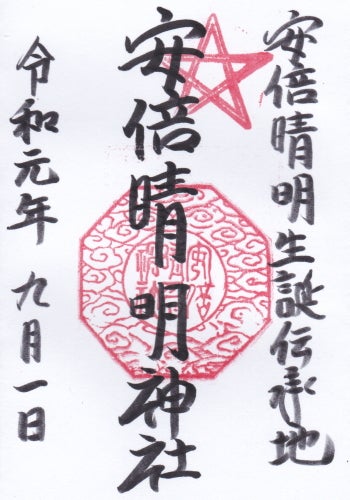 安倍晴明生誕伝承地
安倍晴明神社
令和元年 九月一日